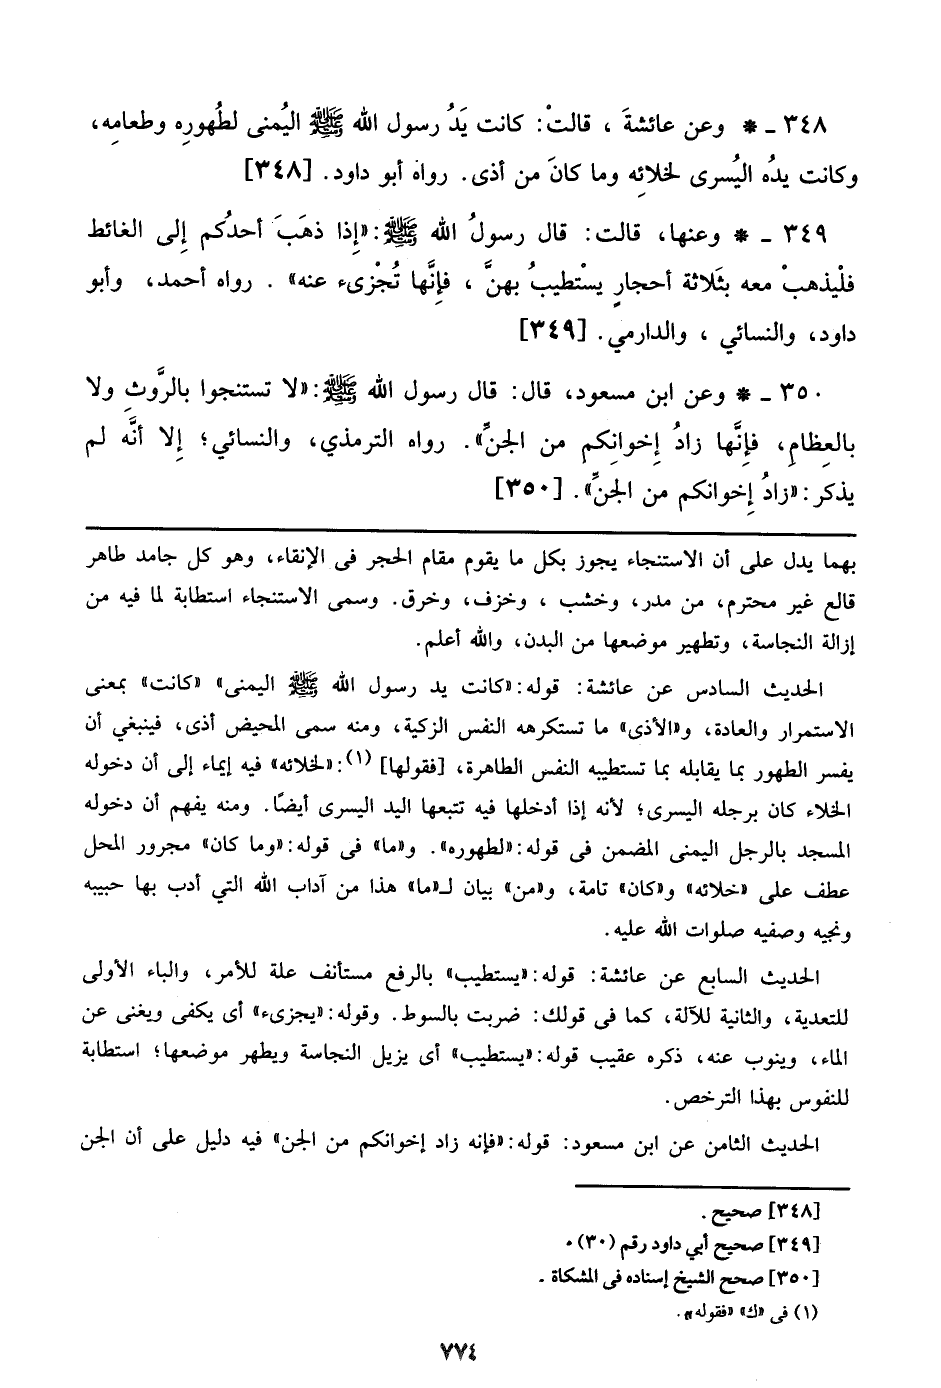 ٣٤٨ ـ * وعن عائشةَ ، قالتْ: كانت يَدُ رسول الله ﷺ اليُمنى لطُهورِه وطعامِه،
وكانت يدُه اليُسرى لخلائِه وما كانَ من أذى. رواه أبو داود. [٣٤٨]
٣٤٩ ـ * وعنها، قالت: قال رسولُ الله ﷺ:«إِذا ذهَبَ أحدُكم إِلى الغائط
فلْيذهبْ معه بثَلاثة أحجارٍ يسْتطيبُ بهنَّ ، فإِنَّها تُجْزىء عنه» . رواه أحمد، وأبو
داود، والنسائي ، والدارمي. [٣٤٩]
٣٥٠ ـ * وعن ابن مسعود، قال: قال رسول الله ﷺ:«لا تستنجوا بالرَّوثِ ولا
بالعِظامِ، فإِنَّها زادُ إِخوانِكم من الجنِّ». رواه الترمذي، والنسائي؛ إِلا أنَّه لم
يذكر:«زادُ إِخوانكم من الجنِّ». [٣٥٠]
بهما يدل على أن الاستنجاء يجوز بكل ما يقوم مقام الحجر فى الإنقاء، وهو كل جامد طاهر
قالع غير محترم، من مدر، وخشب ، وخزف، وخرق. وسمى الاستنجاء استطابة لما فيه من
إزالة النجاسة، وتطهير موضعها من البدن، والله أعلم.
الحديث السادس عن عائشة: قوله:«كانت يد رسول الله ﷺ اليمنى» «كانت» بمعنى
الاستمرار والعادة، و«الأذى» ما تستكرهه النفس الزكية، ومنه سمى المحيض أذى، فينبغي أن
يفسر الطهور بما يقابله بما تستطيبه النفس الطاهرة، [فقولها] (١):«لخلائه» فيه إيماء إلى أن دخوله
الخلاء كان برجله اليسرى؛ لأنه إذا أدخلها فيه تتبعها اليد اليسرى أيضًا. ومنه يفهم أن دخوله
المسجد بالرجل اليمنى المضمن فى قوله:«لطهوره». و«ما» فى قوله:«وما كان» مجرور المحل
عطف على «خلائه» و«كان» تامة، و«من» بيان لـ«ما» هذا من آداب الله التي أدب بها حبيبه
ونجيه وصفيه صلوات الله عليه.
الحديث السابع عن عائشة: قوله:«يستطيب» بالرفع مستأنف علة للأمر، والباء الأولى
للتعدية، والثانية للآلة، كما فى قولك: ضربت بالسوط. وقوله:«يجزىء» أى يكفى ويغنى عن
الماء، وينوب عنه، ذكره عقيب قوله:«يستطيب» أى يزيل النجاسة ويطهر موضعها؛ استطابة
للنفوس بهذا الترخص.
الحديث الثامن عن ابن مسعود: قوله:«فإنه زاد إخوانكم من الجن» فيه دليل على أن الجن
[٣٤٨] صحيح.
[٣٤٩] صحيح أبي داود رقم (٣٠)٠
[٣٥٠] صحح الشيخ إسناده فى المشكاة .
(١) فى «ك» «فقوله».
٧٧٤